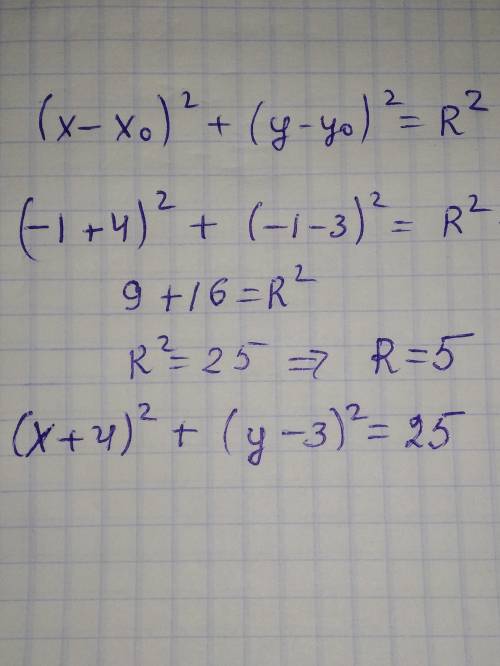 (x - x₀)² + (y - y₀)² = R²
(-1 + 4)² + (-1 - 3)² = R²
9 + 16 = R²
R² = 25 ⇒ R = 5
(x + 4)² + (y - 3)² = 25